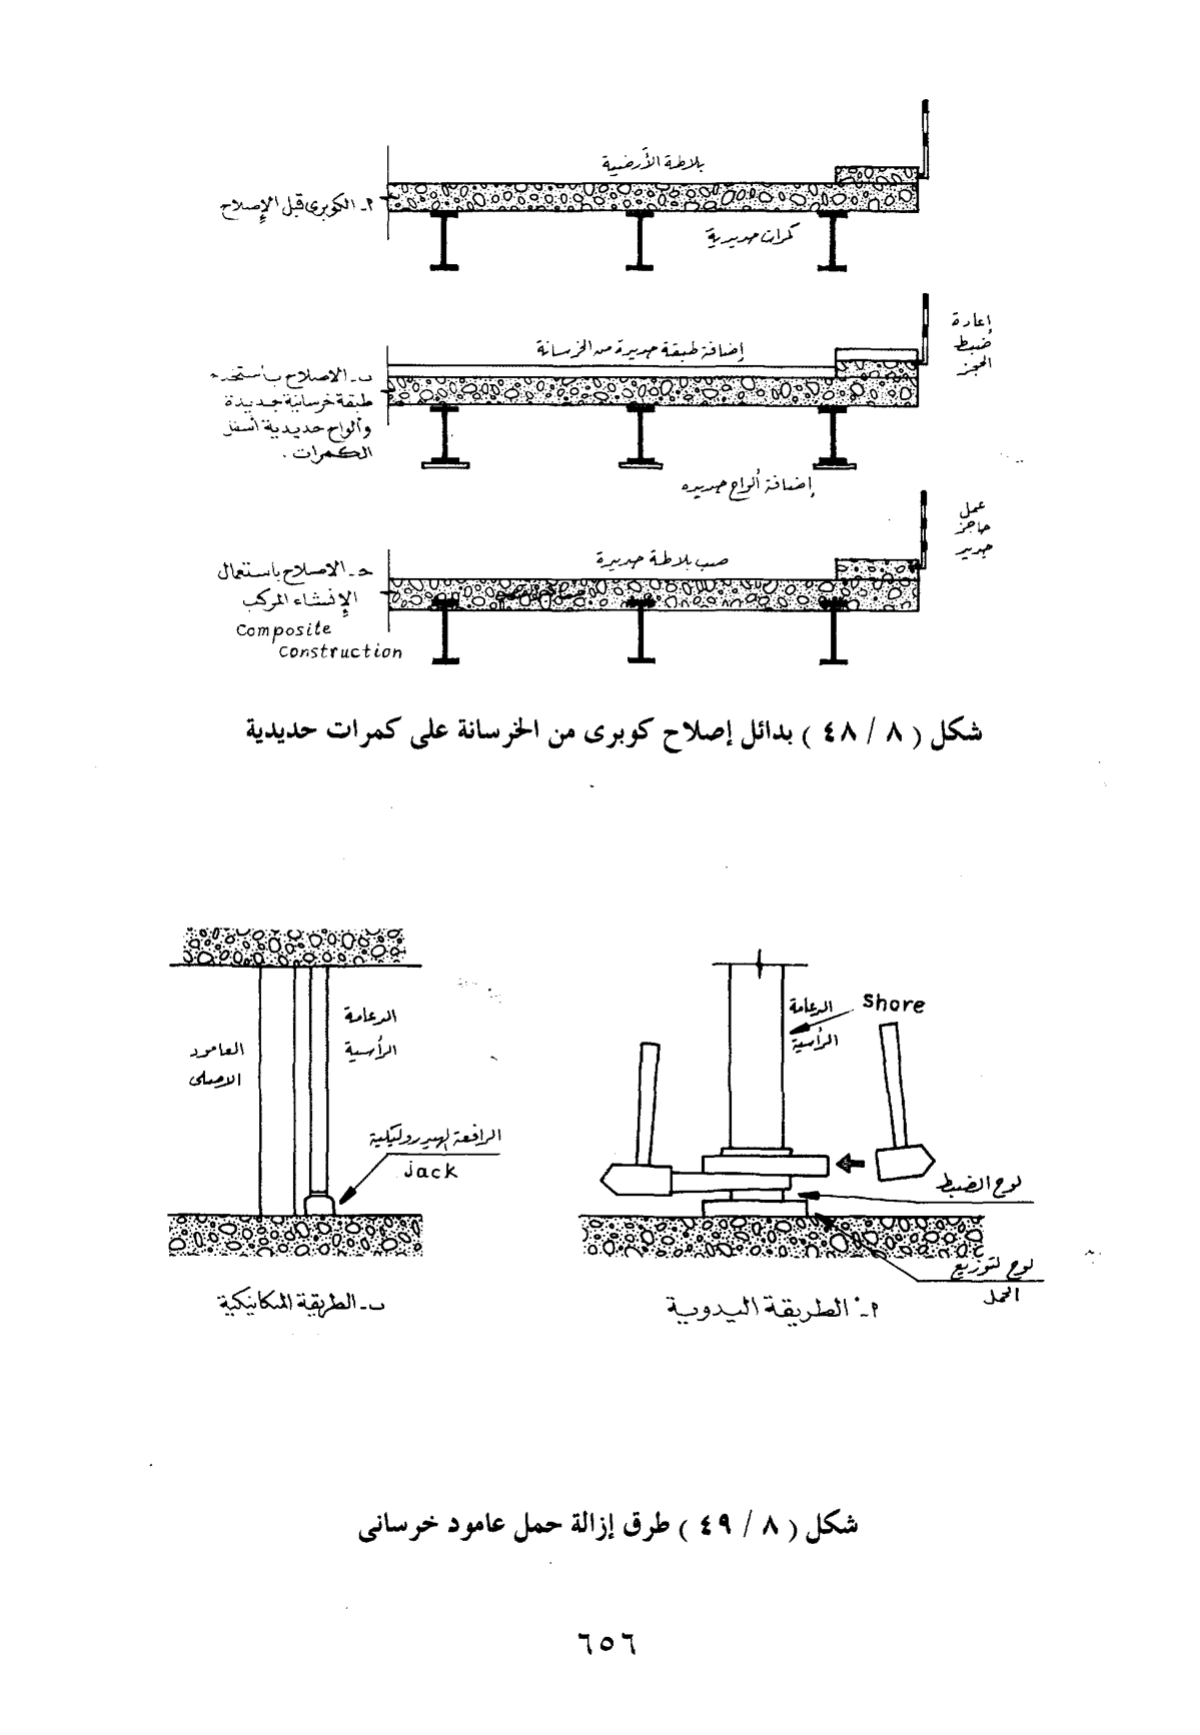 بلاطة الأرضية
أ - الكوبرى قبل الإصلاح
كمرات حديدية
إعادة
ضبط
الحجز
إضافة طبقة جديدة من الخرسانة
ب - الاصلاح باستخدام
طبقة خرسانية جديدة
وألواح حديدية أسفل
الكمرات .
إضافة ألواح جديده
عمل
حاجز
جديد
صب بلاطة جديدة
حـ - الاصلاح باستعمال
الإنشاء المركب
Composite
construction
شكل ( ٨ / ٤٨ ) بدائل إصلاح كوبرى من الخرسانة على كمرات حديدية
الدعامة
الرأسية
shore
لوح الضبط
لوح لتوزيع
الحمل
أ - الطريقة اليدوية
الدعامة
الرأسية
العامود
الاصلى
الرافعة الهيدروليكية
jack
ب - الطريقة الميكانيكية
شكل ( ٨ / ٤٩ ) طرق إزالة حمل عامود خرسانى
٦٥٦